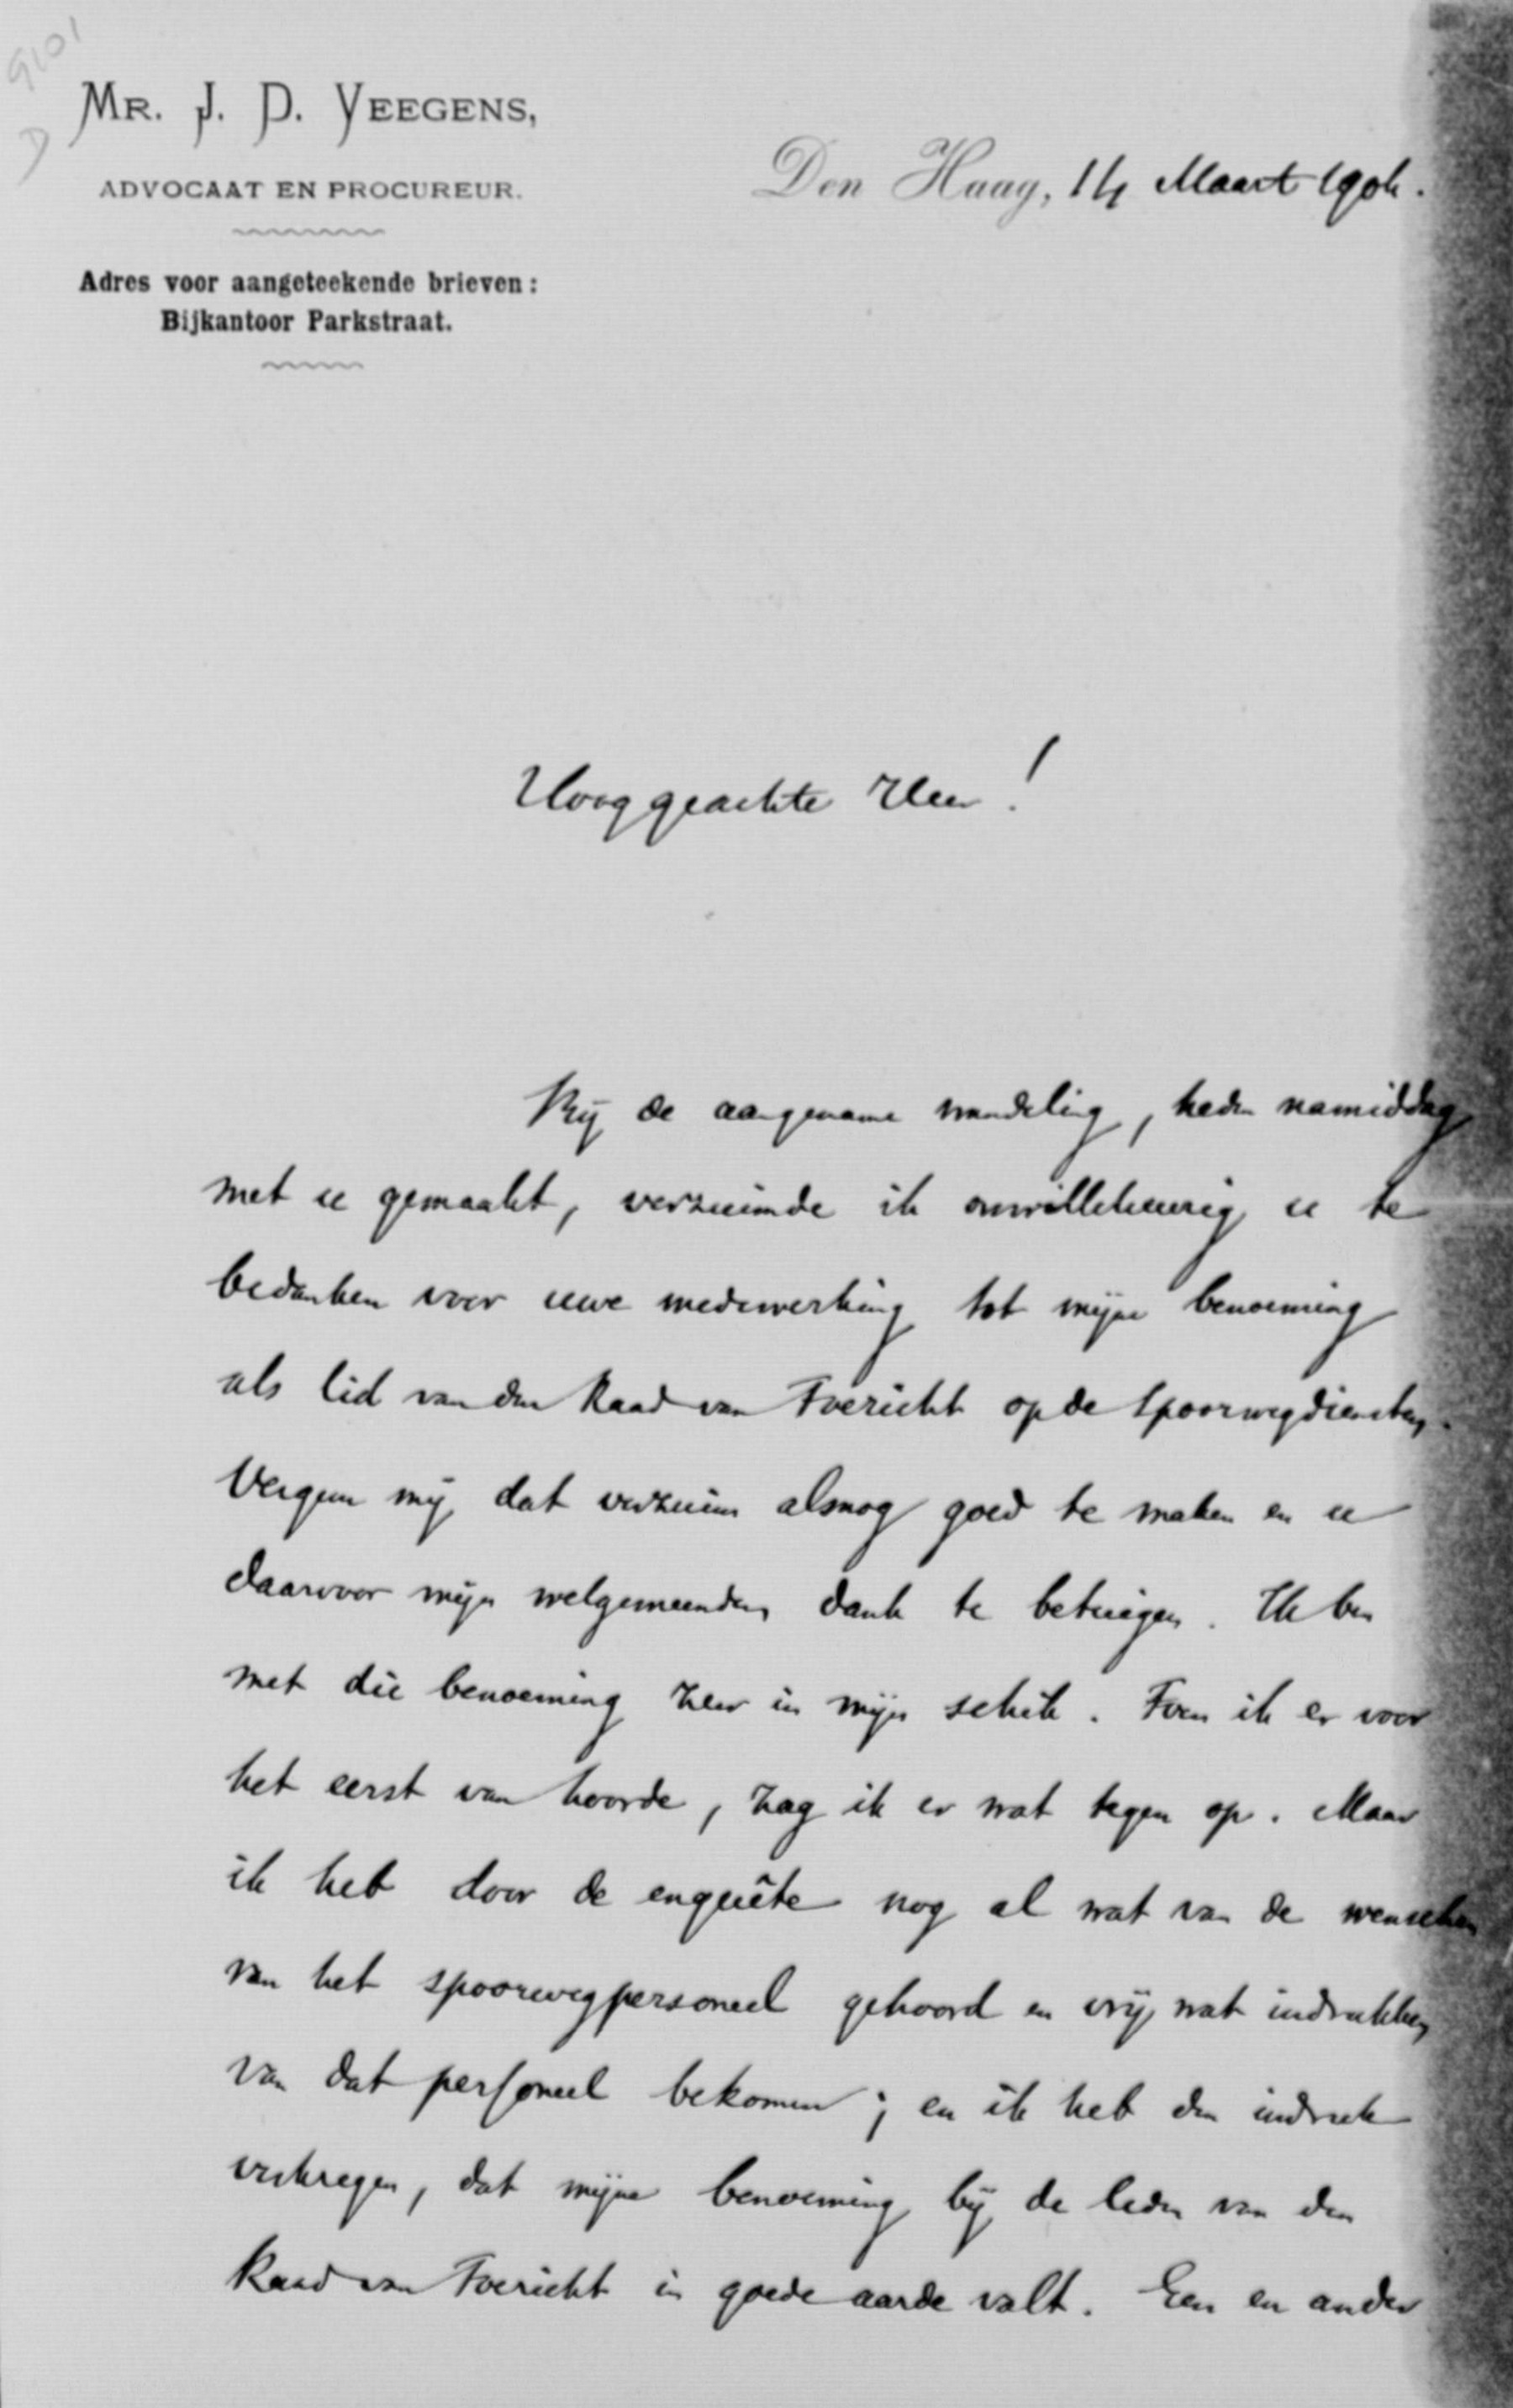 9101
D
MR. J. D. VEEGENS,
ADVOCAAT EN PROCUREUR.
Adres voor aangeteekende brieven:
Bijkantoor Parkstraat.
Den Haag, 14 Maart 1904.
Hooggeachte Heer!
Bij de aangename wandeling, heden namiddag
met u gemaakt, verzuimde ik onwillekeurig u te
bedanken voor uwe medewerking tot mijne benoeming
als lid van den Raad van Toezicht op de Spoorwegdiensten.
Vergun mij dat verzuim alsnog goed te maken en u
daarvoor mijn welgemeenden dank te betuigen. Ik ben
met die benoeming zeer in mijn schik. Toen ik er voor
het eerst van hoorde, zag ik er wat tegen op. Maar
ik heb door de enquête nog al wat van de wenschen
van het spoorwegpersoneel gehoord en vrij wat indrukken
van dat personeel bekomen; en ik heb den indruk
verkregen, dat mijne benoeming bij de leden van den
Raad van Toezicht in goede aarde valt. Een en ander